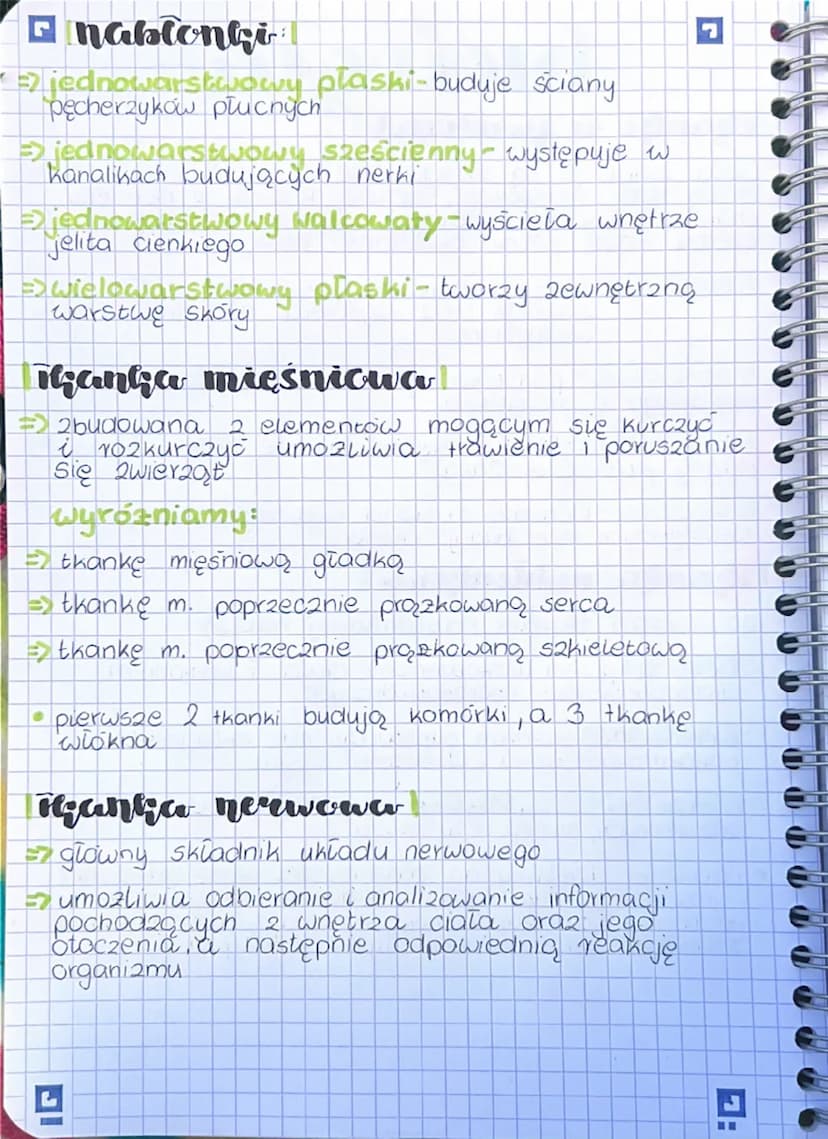 nabłonki:
=> jednowarstwowy płaski - buduje ściany
pęcherzyków płucnych
=> jednowarstwowy sześcienny - występuje w
kanalikach budujących nerki
=> jednowarstwowy walcowaty - wyścieła wnętrze
jelita cienkiego
=> wielowarstwowy płaski - tworzy zewnętrzną
warstwę skóry
tkanka mięśniowa
=> zbudowana z elementów mogącym się kurczyć
i rozkurczyć umożliwia trawienie i poruszanie
się zwierząt
wyróżniamy:
=> tkankę mięśniową gładką
=> tkankę m. poprzecznie prążkowaną serca
=> tkankę m. poprzecznie prążkowaną szkieletową
• pierwsze 2 tkanki budują komórki, a 3 tkankę
włókna
tkanka nerwowa
=> główny składnik układu nerwowego
=> umożliwia odbieranie i analizowanie informacji
pochodzących z wnętrza ciała oraz jego
otoczenia, a następnie odpowiednią reakcję
organizmu